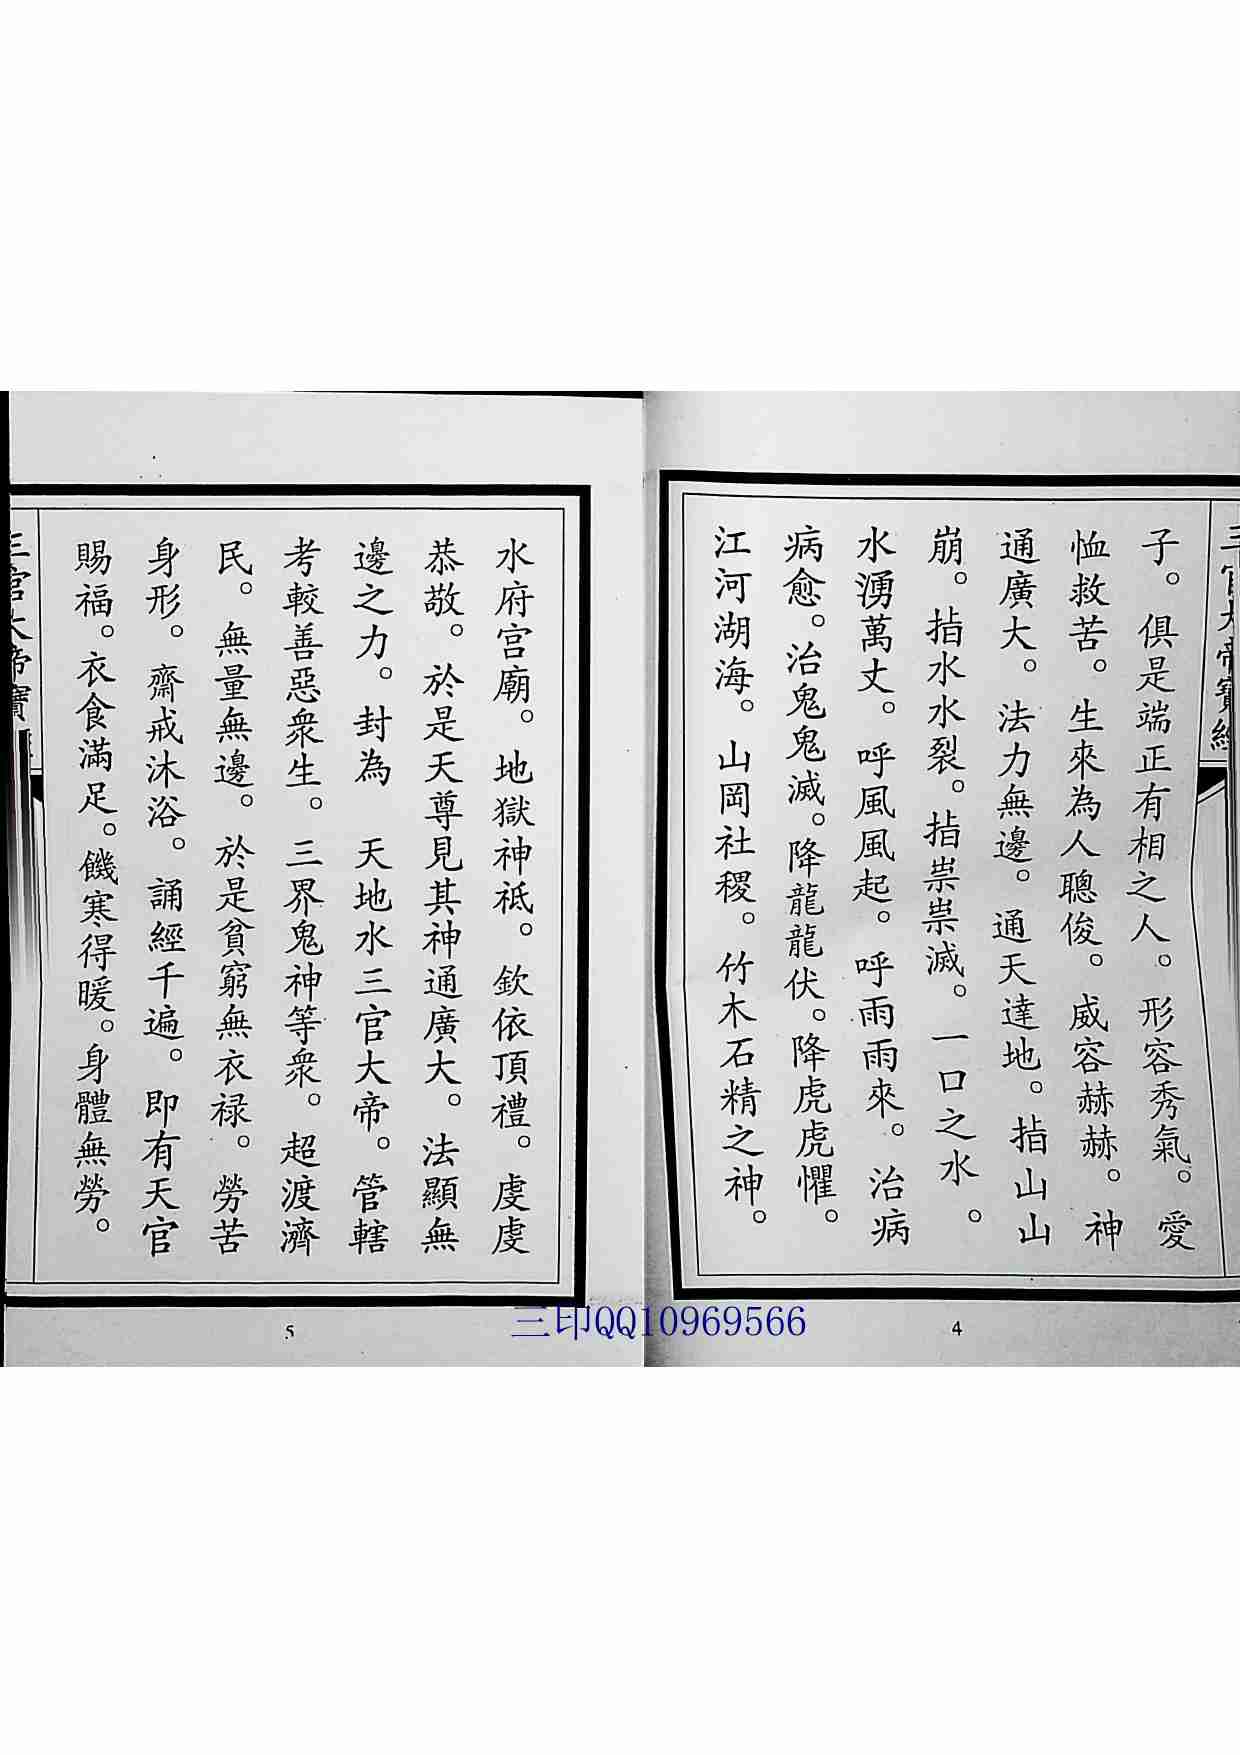 三官大帝寶經
子。俱是端正有相之人。形容秀氣。愛
恤救苦。生來為人聰俊。威容赫赫。神
通廣大。法力無邊。通天達地。指山山
崩。指水水裂。指祟祟滅。一口之水。
水湧萬丈。呼風風起。呼雨雨來。治病
病愈。治鬼鬼滅。降龍龍伏。降虎虎懼。
江河湖海。山岡社稷。竹木石精之神。
4
水府宮廟。地獄神祇。欽依頂禮。虔虔
恭敬。於是天尊見其神通廣大。法顯無
邊之力。封為 天地水三官大帝。管轄
考較善惡衆生。三界鬼神等衆。超渡濟
民。無量無邊。於是貧窮無衣禄。勞苦
身形。齋戒沐浴。誦經千遍。即有天官
賜福。衣食滿足。饑寒得暖。身體無勞。
三官大帝寶
5
三印QQ10969566